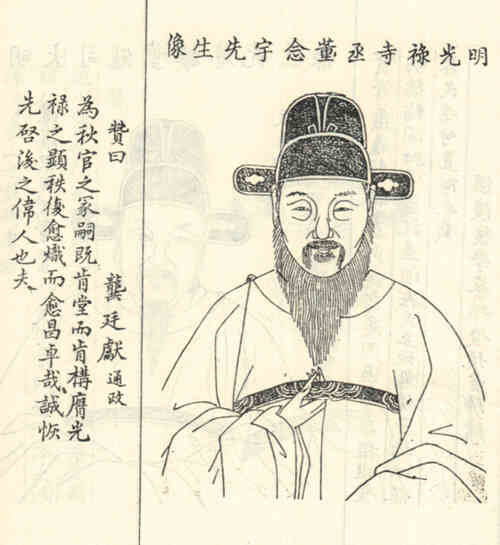 明光祿寺丞董念宇先生像
贊曰
龔廷獻 通政
為秋官之冢嗣既肯堂而肯構膺光
祿之顯秩復愈熾而愈昌卓哉誠恢
先啓後之偉人也夫